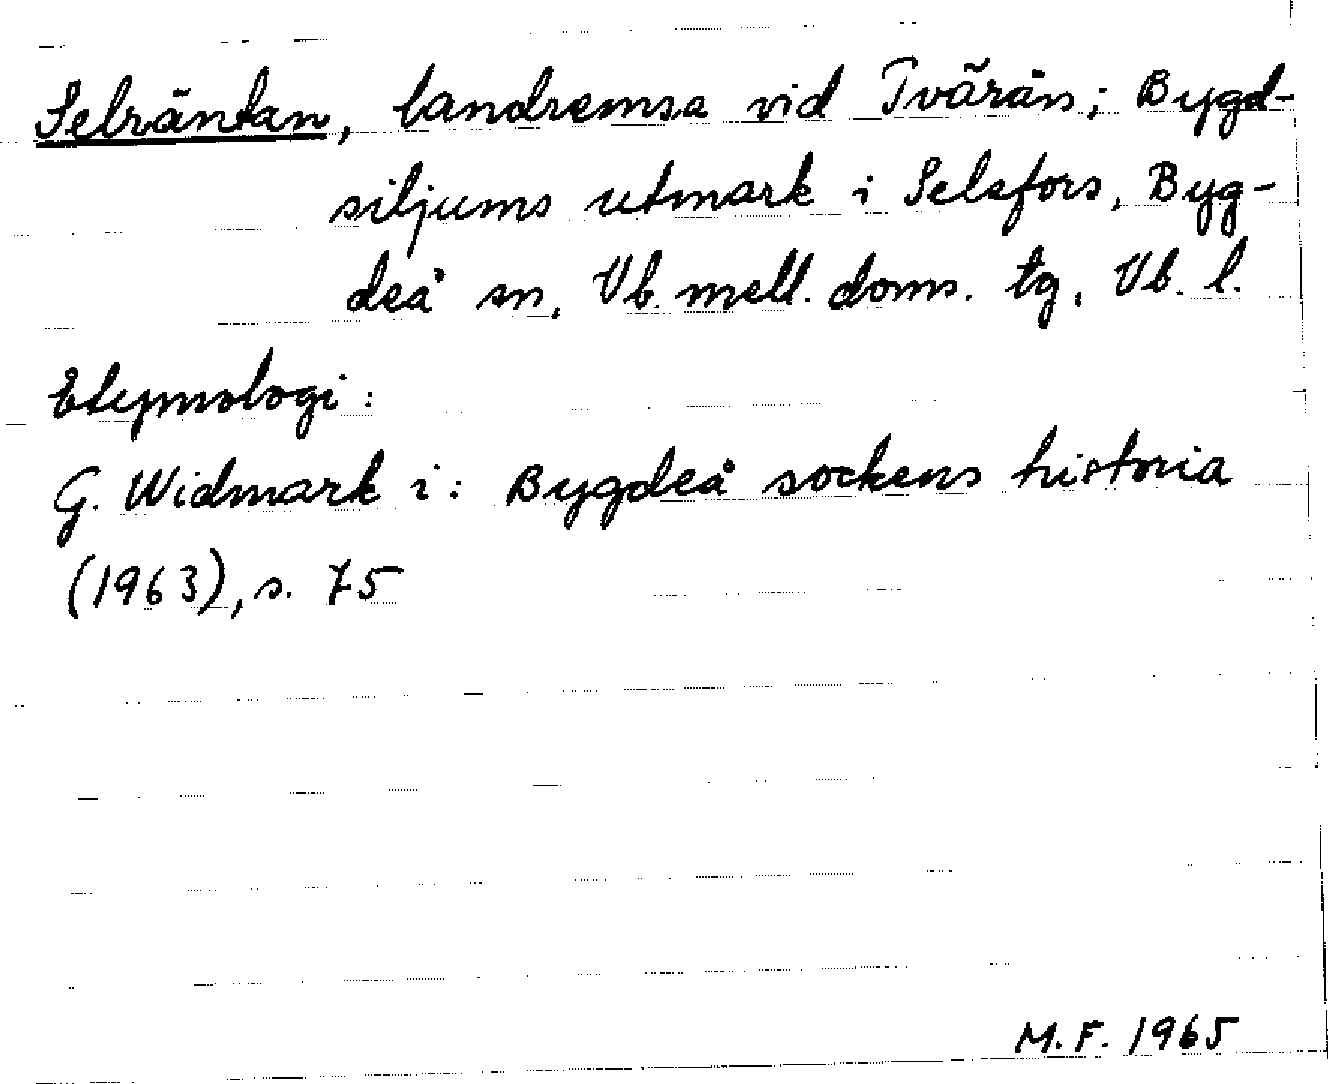 Selräntan, landremsa vid Tvärån; Bygd-
siljums utmark i Selsfors, Byg-
deå sn, Vb. mell. doms. tg, Vb. l.
Etymologi:
G. Widmark i: Bygdeå sockens historia
(1963), s. 75
M.F. 1965